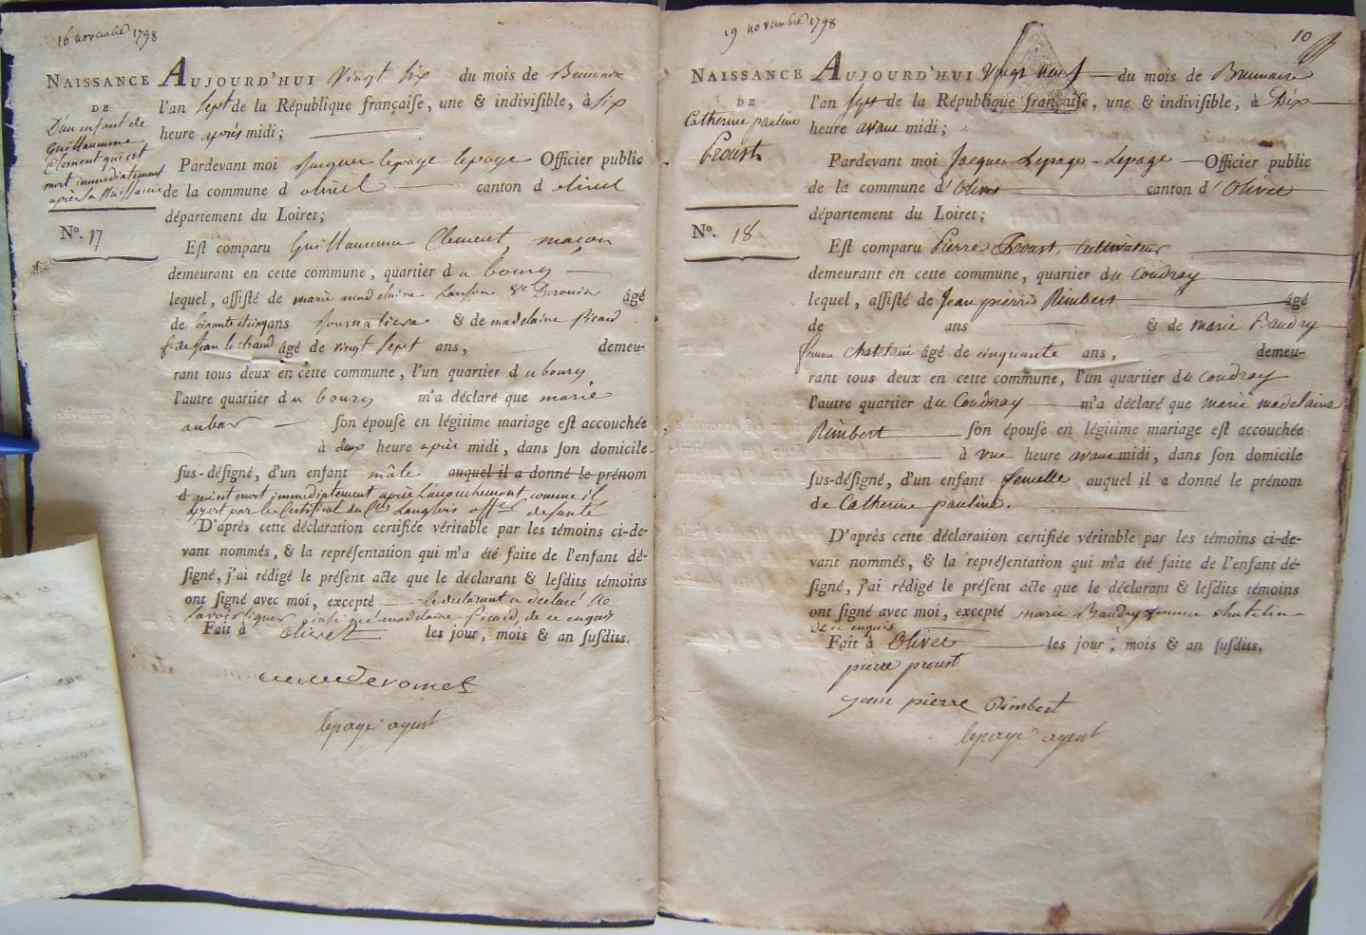 16 novembre 1798
NAISSANCE
DE
D'un enfant de
Guillaumme
Clement qui est
mort immediatement
après sa Naissance
N°. 17
AUJOURD'HUI Vingt Six du mois de Brumaire
l'an Sept de la République françaiſe, une & indiviſible, à six
heure après midi;
Pardevant moi Jacques lepage lepage Officier public
de la commune d olivet canton d olivet
département du Loiret;
Eſt comparu Guillaumme Clement, maçon
demeurant en cette commune, quartier du bourg
lequel, aſſiſté de marie madelaine âgé
de ans Journaliere & de madelaine Picard
fe de Jean âgé de vingt sept ans, demeu-
rant tous deux en cette commune, l'un quartier du bourg,
l'autre quartier du bourg m'a déclaré que marie
aubar ſon épouſe en légitime mariage eſt accouchée
à deux heure après midi, dans ſon domicile
ſus-déſigné, d'un enfant mâle auquel il a donné le prénom
d qui est mort immediatement après l'accouchement comme il
apert par le Certificat du Cen Langlois offer de santé
D'après cette déclaration certifiée véritable par les témoins ci-de-
vant nommés, & la repréſentation qui m'a été faite de l'enfant dé-
ſigné, j'ai rédigé le préſent acte que le déclarant & leſdits témoins
ont ſigné avec moi, excepté le declarant a declaré ne
savoir signer ainsi que madelaine Picard, de ce enquis
Fait à Olivet les jour, mois & an ſuſdits.
lepage agent
19 novembre 1798
10
NAISSANCE
DE
Catherine pauline
Proust
N°. 18
AUJOURD'HUI Vingt neuf du mois de Brumaire
l'an Sept de la République françaiſe, une & indiviſible, à Dix
heure avant midi;
Pardevant moi Jacques Lepage - Lepage Officier public
de la commune d'Olivet canton d'Olivet
département du Loiret;
Eſt comparu Pierre Proust, Cultivateur
demeurant en cette commune, quartier du Coudray
lequel, aſſiſté de Jean pierre Rimbert âgé
de ans & de marie Baudry
femme Chatelain âgé de cinquante ans, demeu-
rant tous deux en cette commune, l'un quartier du Coudray
l'autre quartier du Coudray m'a déclaré que marie madelaine
Rimbert ſon épouſe en légitime mariage eſt accouchée
à une heure avant midi, dans ſon domicile
ſus-déſigné, d'un enfant femelle auquel il a donné le prénom
de Catherine pauline.
D'après cette déclaration certifiée véritable par les témoins ci-de-
vant nommés, & la repréſentation qui m'a été faite de l'enfant dé-
ſigné, j'ai rédigé le préſent acte que le déclarant & leſdits témoins
ont ſigné avec moi, excepté marie Baudry femme chatelin
de ce enquis
Fait à Olivet les jour, mois & an ſuſdits.
pierre proust
jean pierre Rimbert
lepage agent